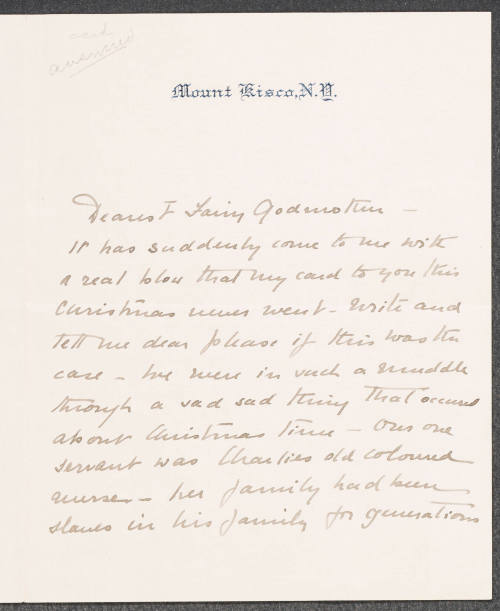 and
answered
Mount Kisco, N.Y.
Dearest Fairy Godmother –
It has suddenly come to me with
a real blow that my card to you this
Christmas never went – Write and
tell me dear please if this was the
case – We were in such a muddle
through a sad sad thing that occured
about Christmas time – Our one
servant was Charlies old coloured
nurse – her family had been
slaves in his family for generations